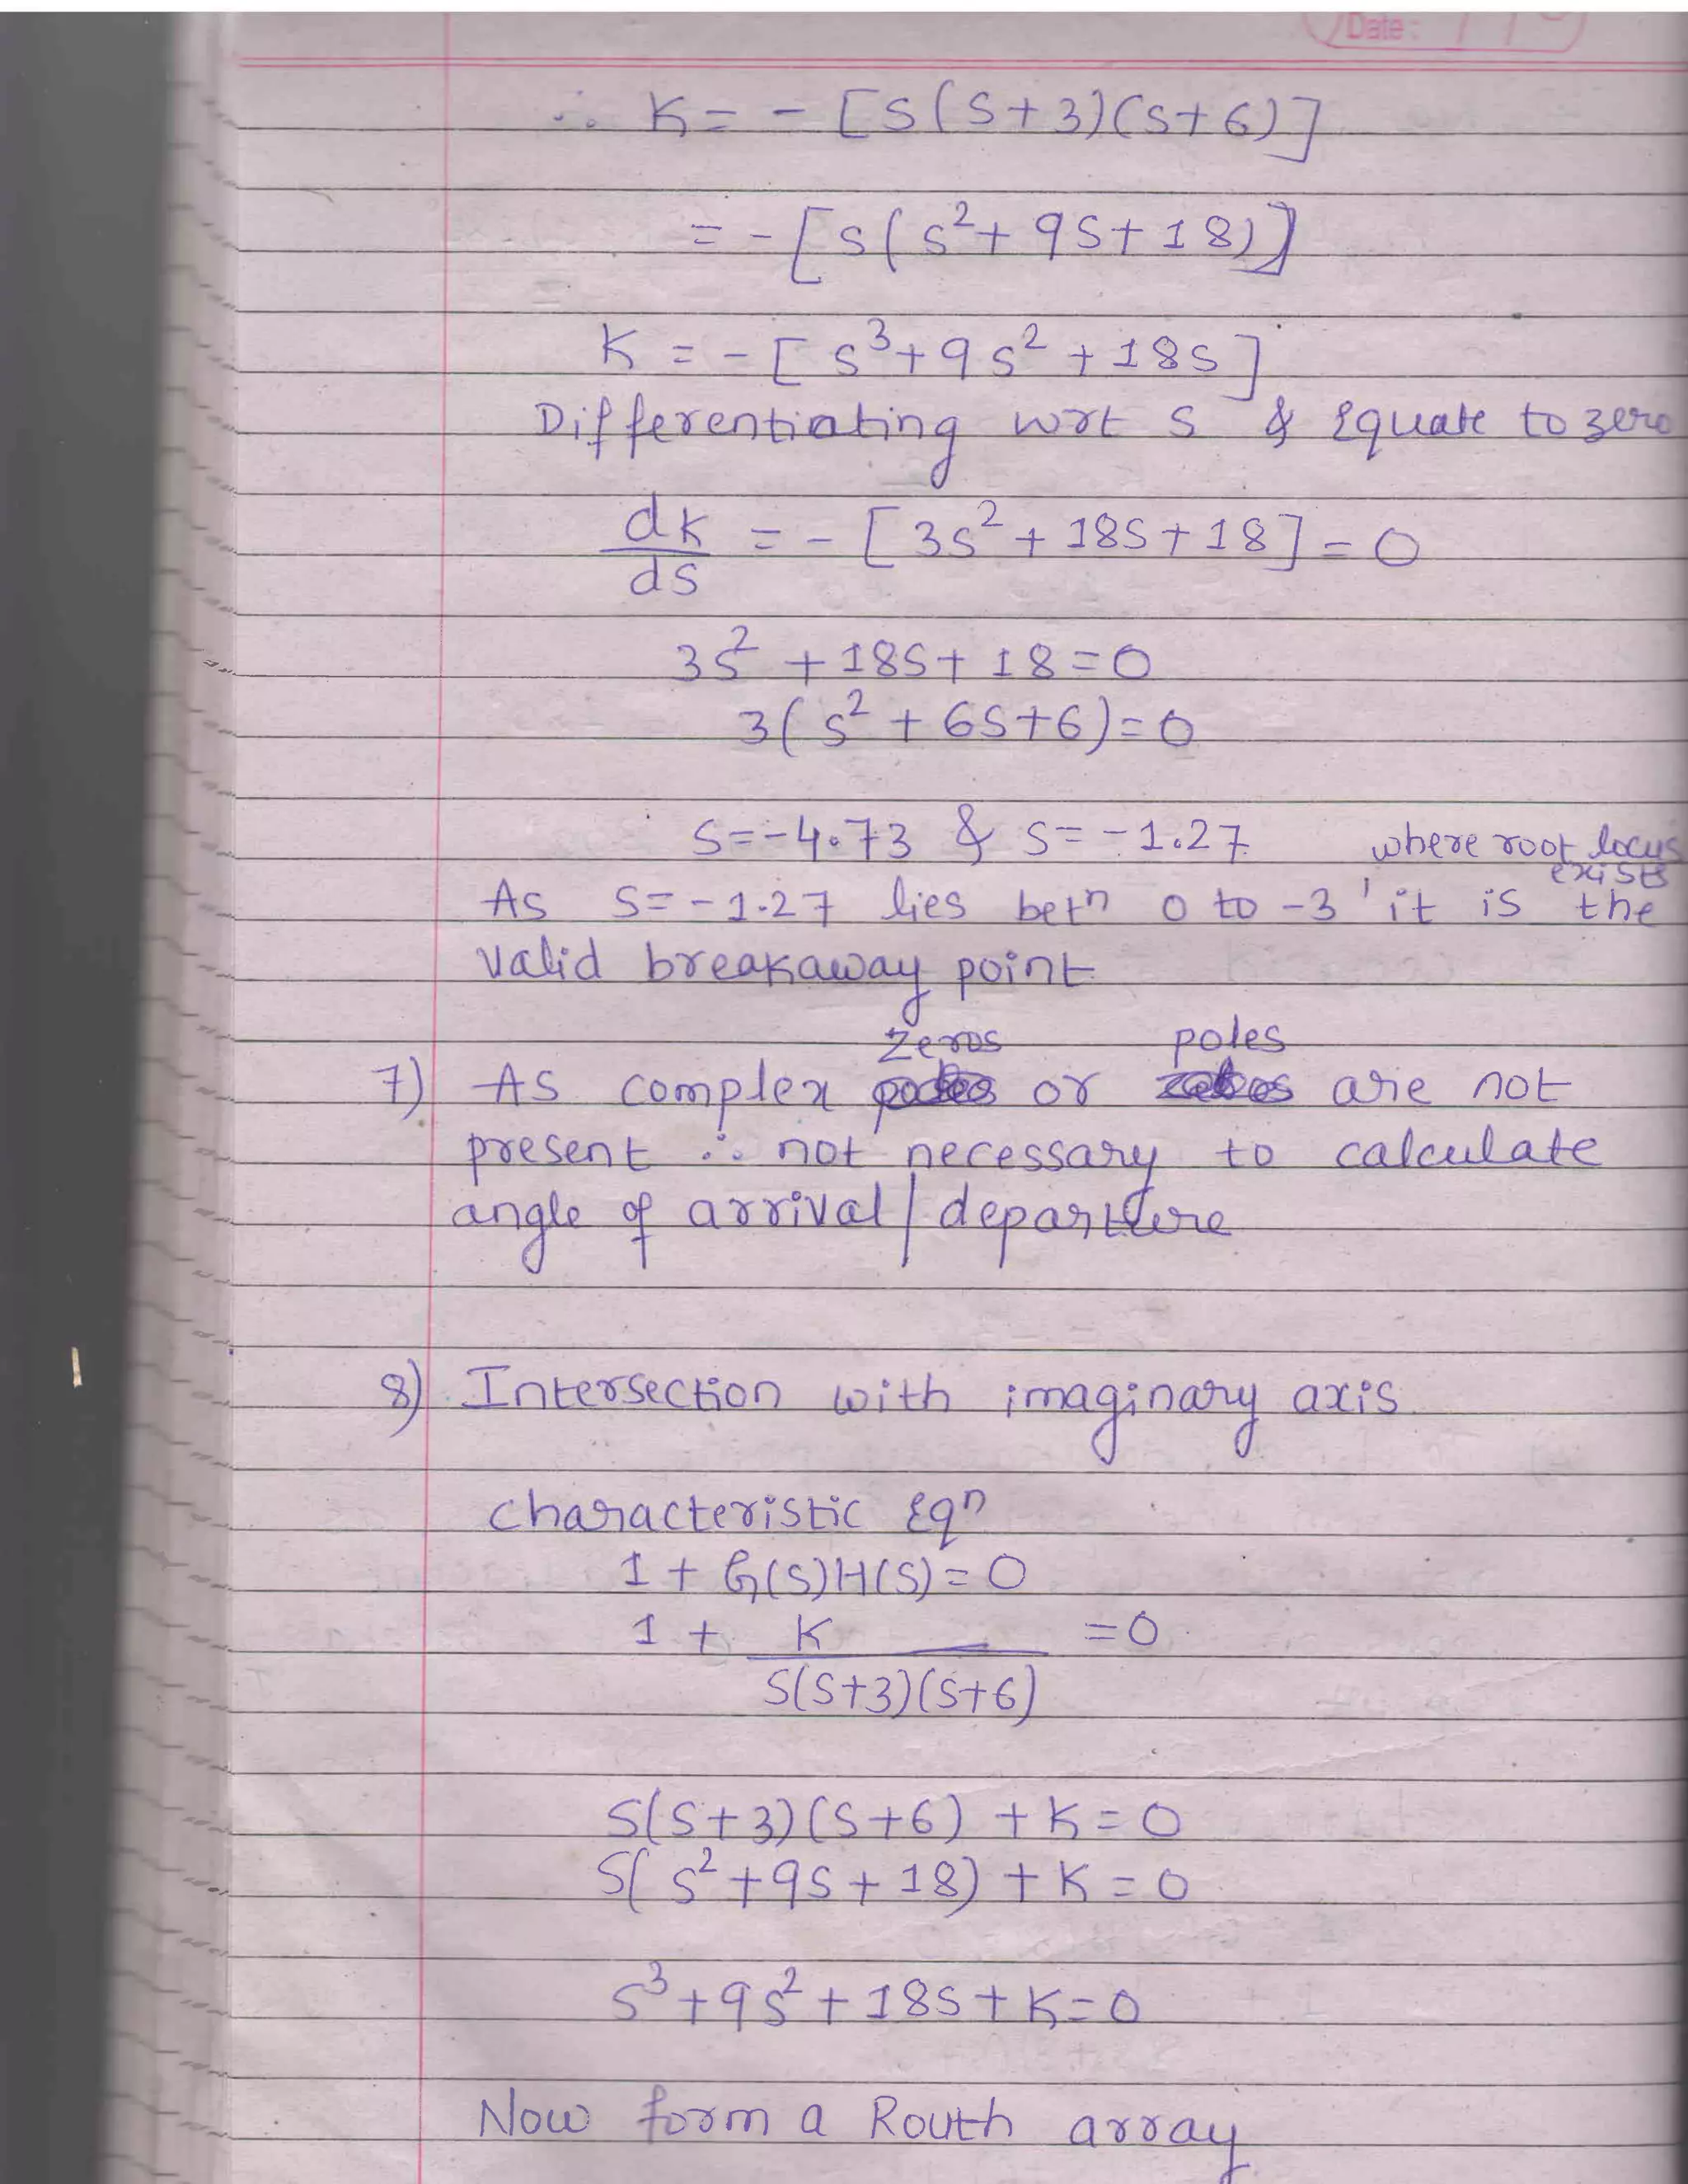 Date:
∴ K = - [S(S+3)(S+6)]
= - [S(S²+9S+18)]
K = - [S³+9S²+18S]
Differentiating wrt S & Equate to zero
dK/dS = - [3S²+18S+18] = 0
3S² +18S+18=0
3(S² + 6S+6)=0
S=-4.73 & S=-1.27 where root locus exists
As S=-1.27 lies betⁿ 0 to -3 ' it is the
valid breakaway point
zeros poles
7) As complex or are not
present ∴ not necessary to calculate
angle of arrival / departure
8) Intersection with imaginary axis
characteristic Eqⁿ
1 + G(S)H(S) = 0
1 + K/S(S+3)(S+6) = 0
S(S+3)(S+6) + K = 0
S(S²+9S+18) + K = 0
S³+9S²+18S+K=0
Now form a Routh array